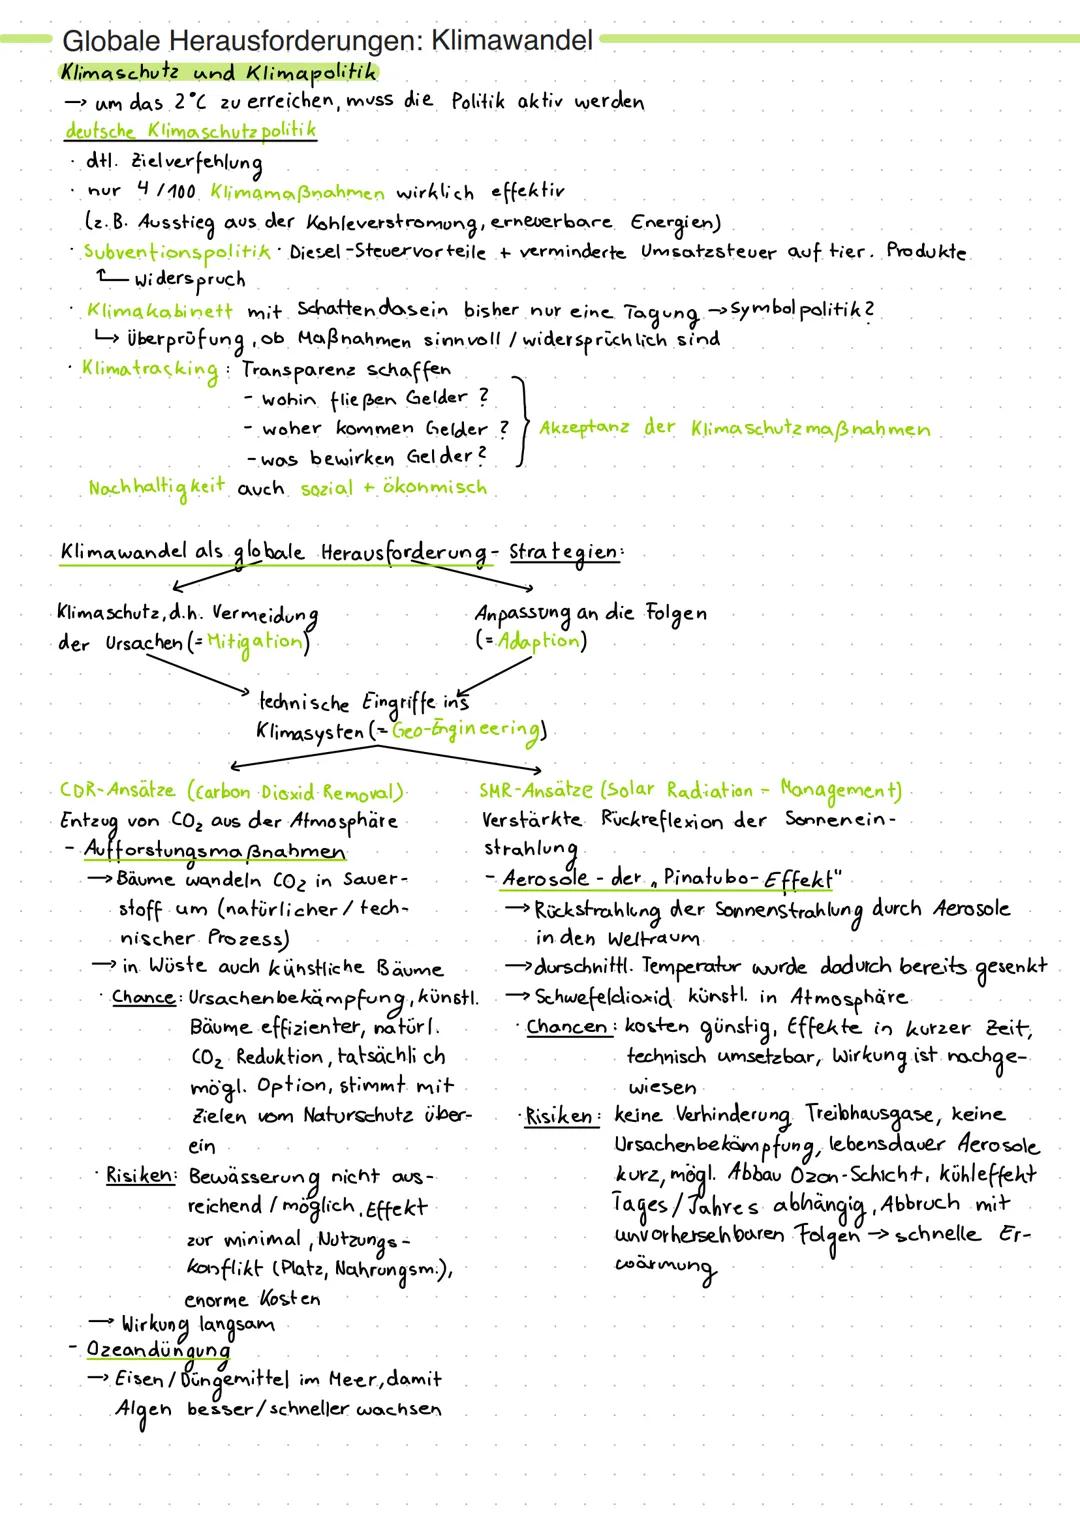 Globale Herausforderungen: Klimawandel
Klimaschutz und Klimapolitik
→ um das 2°C zu erreichen, muss die Politik aktiv werden
deutsche Klimaschutzpolitik
· dtl. Zielverfehlung
· nur 4/100 Klimamaßnahmen wirklich effektiv
(z.B. Ausstieg aus der Kohleverstromung, erneuerbare Energien)
· Subventionspolitik · Diesel-Steuervorteile + verminderte Umsatzsteuer auf tier. Produkte
Widerspruch
· Klimakabinett mit Schattendasein bisher nur eine Tagung → Symbolpolitik?
↳ Überprüfung, ob Maßnahmen sinnvoll / widersprüchlich sind
· Klimatracking: Transparenz schaffen
- wohin fließen Gelder?
- woher kommen Gelder? } Akzeptanz der Klimaschutzmaßnahmen
- was bewirken Gelder?
Nachhaltigkeit auch sozial + ökonmisch
Klimawandel als globale Herausforderung - Strategien:
Klimaschutz, d.h. Vermeidung
der Ursachen (= Mitigation)
Anpassung an die Folgen
(= Adaption)
technische Eingriffe ins
Klimasysten (= Geo-Engineering)
CDR-Ansätze (Carbon Dioxid Removal)
Entzug von CO₂ aus der Atmosphäre
- Aufforstungsmaßnahmen
→ Bäume wandeln CO₂ in Sauer-
stoff um (natürlicher / tech-
nischer Prozess)
→ in Wüste auch künstliche Bäume
· Chance: Ursachenbekämpfung, künstl.
Bäume effizienter, natürl.
CO₂ Reduktion, tatsächlich
mögl. Option, stimmt mit
Zielen vom Naturschutz über-
ein
· Risiken: Bewässerung nicht aus-
reichend / möglich, Effekt
zur minimal, Nutzungs-
konflikt (Platz, Nahrungsm.),
enorme Kosten
→ Wirkung langsam
- Ozeandüngung
→ Eisen / Düngemittel im Meer, damit
Algen besser/schneller wachsen
SMR-Ansätze (Solar Radiation - Management)
Verstärkte Rückreflexion der Sonnenein-
strahlung
- Aerosole - der „Pinatubo-Effekt"
→ Rückstrahlung der Sonnenstrahlung durch Aerosole
in den Weltraum
→ durschnittl. Temperatur wurde dadurch bereits gesenkt
→ Schwefeldioxid künstl. in Atmosphäre
· Chancen: kosten günstig, Effekte in kurzer Zeit,
technisch umsetzbar, Wirkung ist nachge-
wiesen
· Risiken: keine Verhinderung Treibhausgase, keine
Ursachenbekämpfung, lebensdauer Aerosole
kurz, mögl. Abbau Ozon-Schicht, Kühleffekt
Tages/Jahres abhängig, Abbruch mit
unvorhersehbaren Folgen → schnelle Er-
wärmung